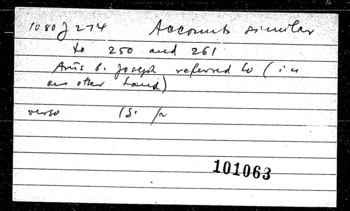 1080 J 274 Accounts similar
to 250 and 261
Arus b. Joseph referred to (in
an other hand)
verso
101063